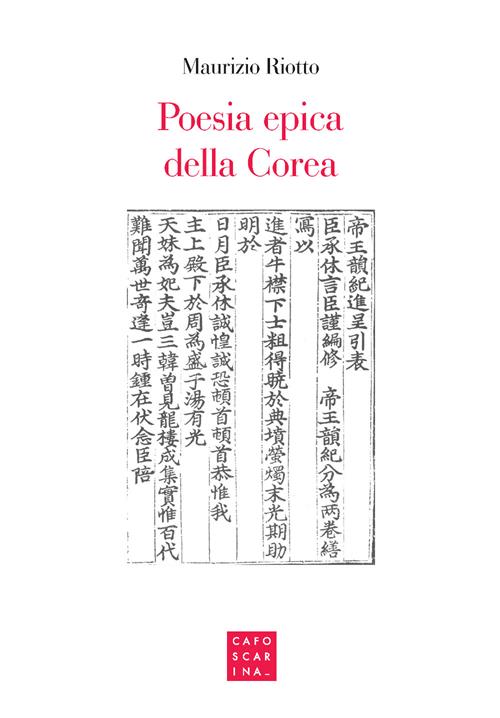 Maurizio Riotto
Poesia epica
della Corea
帝王韻紀進呈引表
臣承休言臣謹編修 帝王韻紀分為两卷繕
寫以
進者牛襟下士粗得曉於典墳螢燭末光期助
明於
日月臣承休誠惶誠恐頓首頓首恭惟我
主上殿下於周為盛于湯有光
天妹為妃夫豈三韓曽見龍樓成集實惟百代
難聞萬世奇逢一時鍾在伏念臣陪
CAFO
SCAR
INA_